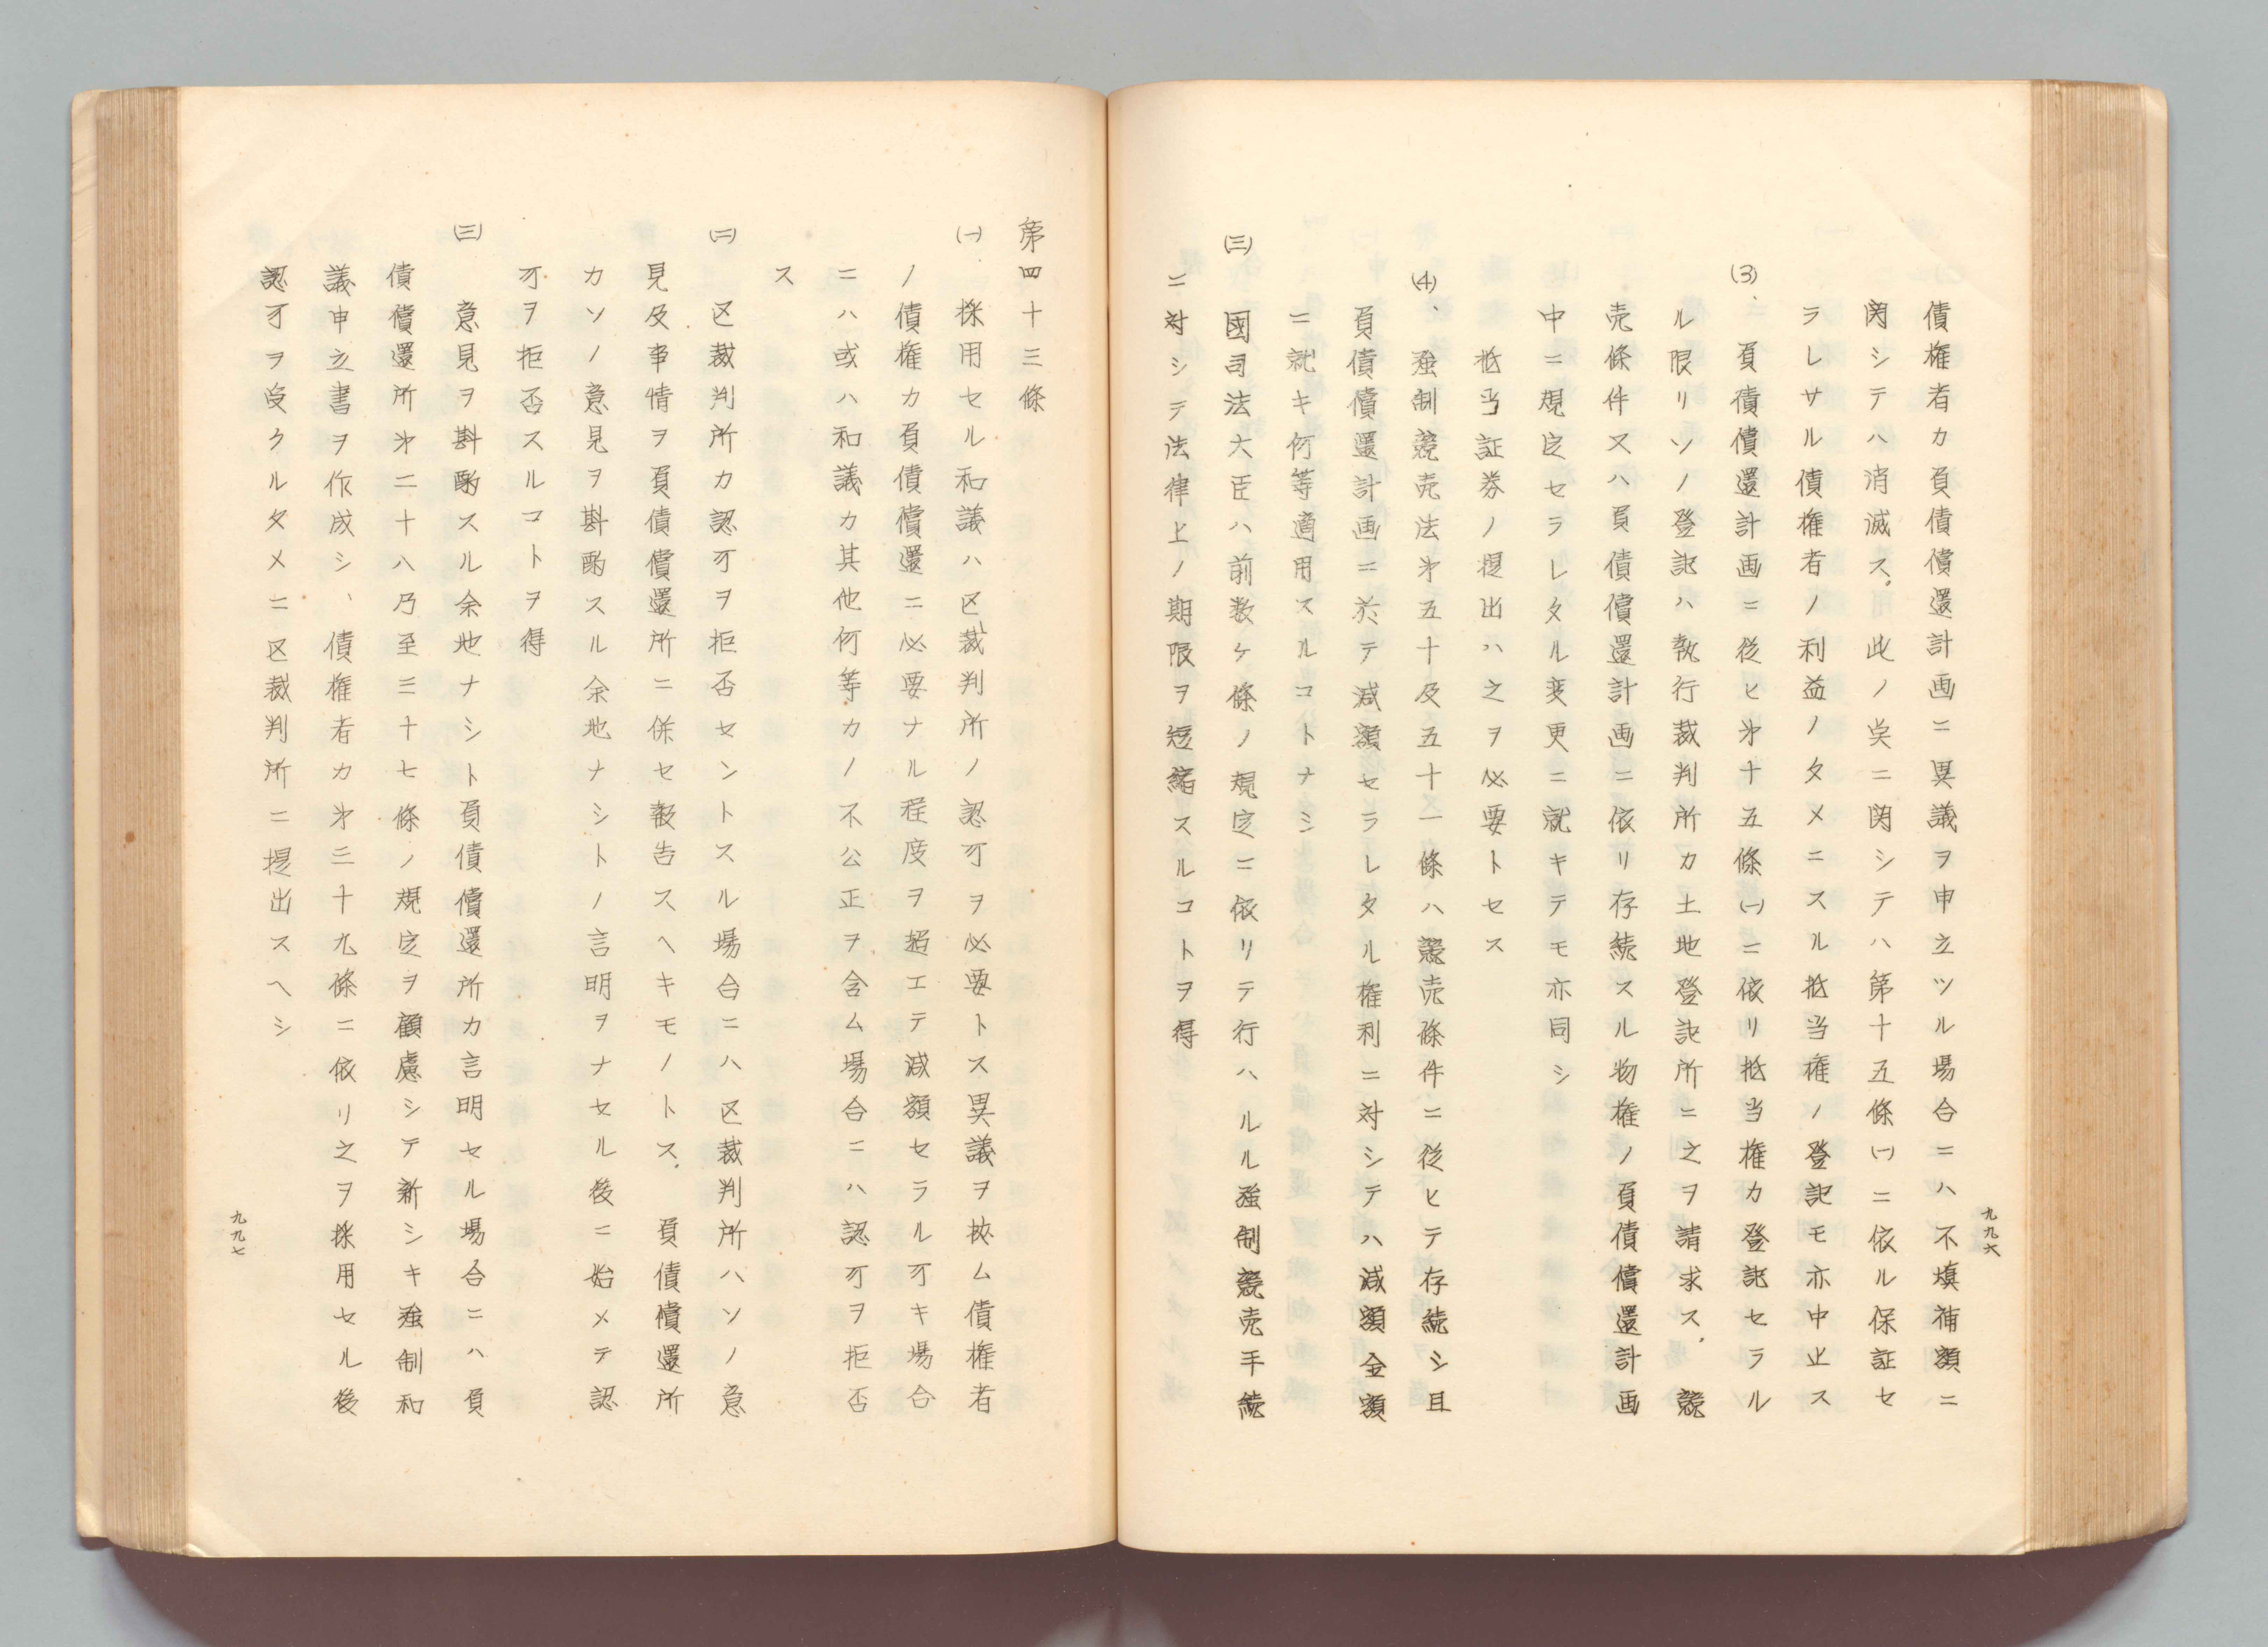 債権者カ負債償還計画ニ異議ヲ申立ツル場合ニハ不填補額ニ
関シテハ消滅ス、此ノ点ニ関シテハ第十五條㈠ニ依ル保証セ
ラレサル債権者ノ利益ノタメニスル抵当権ノ登記モ亦中止ス
(3)、負債償還計画ニ従ヒ第十五條㈠ニ依リ抵当権カ登記セラル
ル限リソノ登記ハ執行裁判所カ土地登記所ニ之ヲ請求ス、競
売條件又ハ負債償還計画ニ依リ存続スル物権ノ負債償還計画
中ニ規定セラレタル変更ニ就キテモ亦同シ
抵当証券ノ提出ハ之ヲ必要トセス
(4)、強制競売法第五十及五十一條ハ競売條件ニ従ヒテ存続シ且
負債償還計画ニ於テ減額セラレタル権利ニ対シテハ減額金額
ニ就キ何等適用スルコトナシ
㈢國司法大臣ハ前数ケ條ノ規定ニ依リテ行ハルル強制競売手続
ニ対シテ法律上ノ期限ヲ短縮スルコトヲ得
九九六
第四十三條
㈠、採用セル和議ハ区裁判所ノ認可ヲ必要トス異議ヲ挾ム債権者
ノ債権カ負債償還ニ必要ナル程度ヲ超エテ減額セラル可キ場合
ニハ或ハ和議カ其他何等カノ不公正ヲ含ム場合ニハ認可ヲ拒否
ス
㈡区裁判所カ認可ヲ拒否セントスル場合ニハ区裁判所ハソノ意
見及事情ヲ負債償還所ニ併セ報告スヘキモノトス、負債償還所
カソノ意見ヲ斟酌スル余地ナシトノ言明ヲナセル後ニ始メテ認
可ヲ拒否スルコトヲ得
㈢意見ヲ斟酌スル余地ナシト負債償還所カ言明セル場合ニハ負
債償還所第二十八乃至三十七條ノ規定ヲ顧慮シテ新シキ強制和
議申立書ヲ作成シ、債権者カ第三十九條ニ依リ之ヲ採用セル後
認可ヲ受クルタメニ区裁判所ニ提出スヘシ
九九七